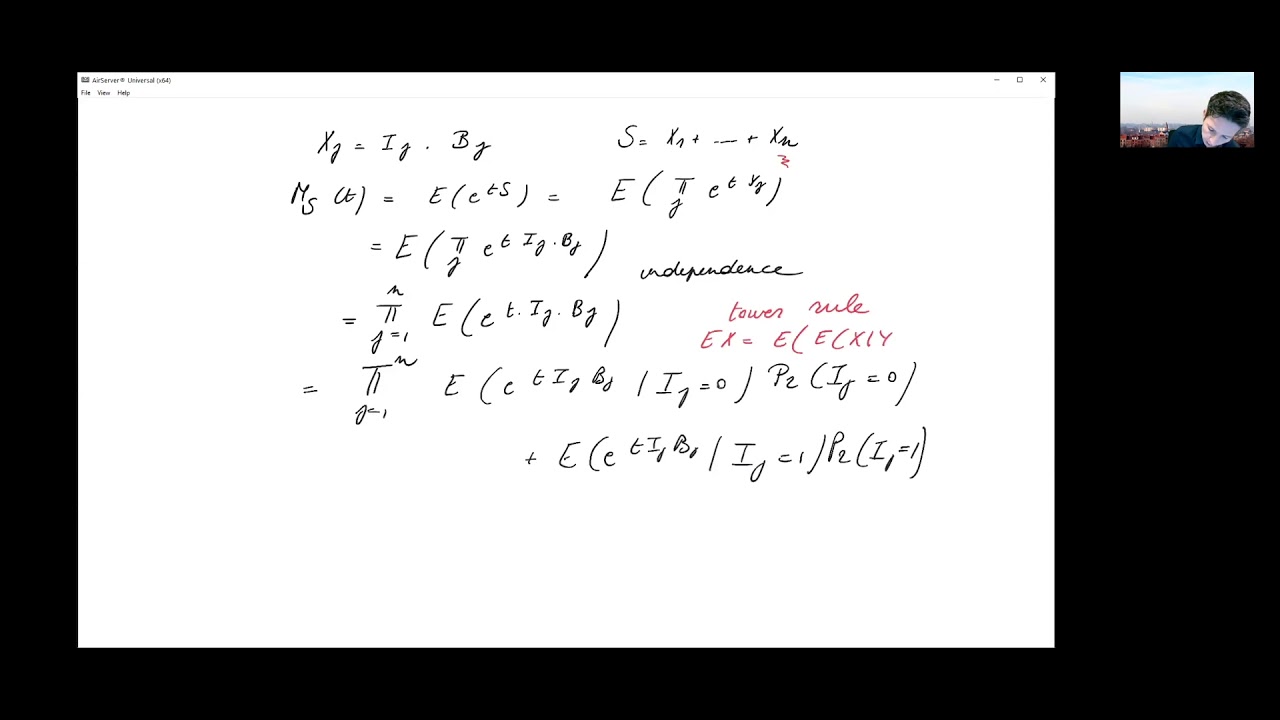 AirServer® Universal (x64)
File View Help
X_j = I_j . B_j    S = X_1 + --- + X_n
M_S (t) = E(e^{tS}) = E(∏_j e^{t X_j})
= E(∏_j e^{t I_j . B_j})
independence
= ∏_{j=1}^n E(e^{t. I_j. B_j})
tower rule
EX = E(E(X|Y
= ∏_{j=1}^n E(e^{t I_j B_j} | I_j = 0) Pr(I_j = 0)
+ E(e^{t I_j B_j} | I_j = 1) Pr(I_j = 1)